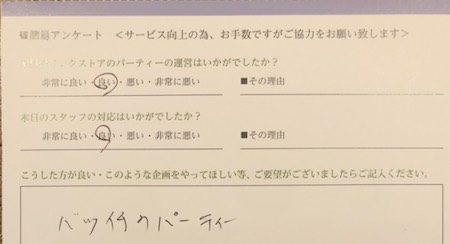 アンケート ＜サービス向上の為、お手数ですがご協力をお願い致します＞
クストアのパーティーの運営はいかがでしたか？
非常に良い・良い・悪い・非常に悪い ■その理由
本日のスタッフの対応はいかがでしたか？
非常に良い・良い・悪い・非常に悪い ■その理由
こうした方が良い・このような企画をやってほしい等、ご要望がございましたらご記入ください。
バツイチのパーティー